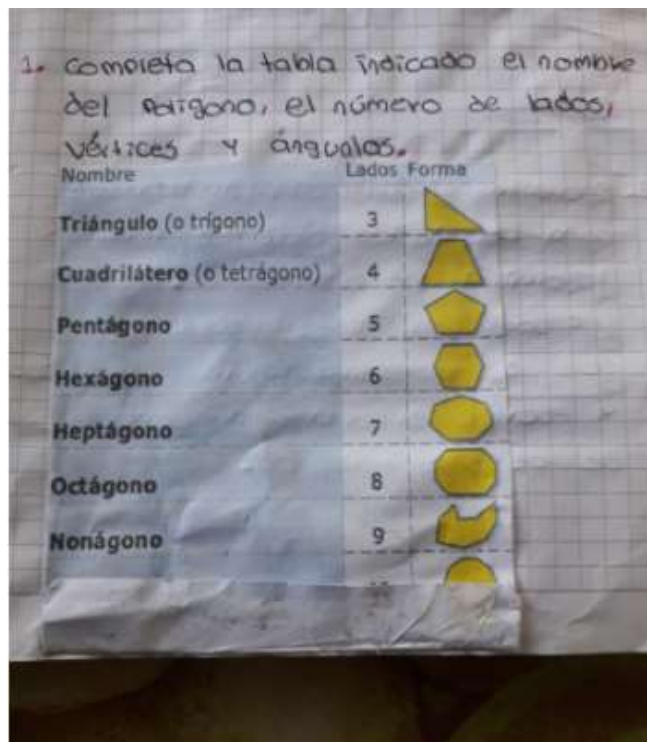 1. completa la tabla indicado el nombre
del polígono, el número de lados,
vértices y ángualos.
Nombre Lados Forma
Triángulo (o trígono) 3
Cuadrilátero (o tetrágono) 4
Pentágono 5
Hexágono 6
Heptágono 7
Octágono 8
Nonágono 9